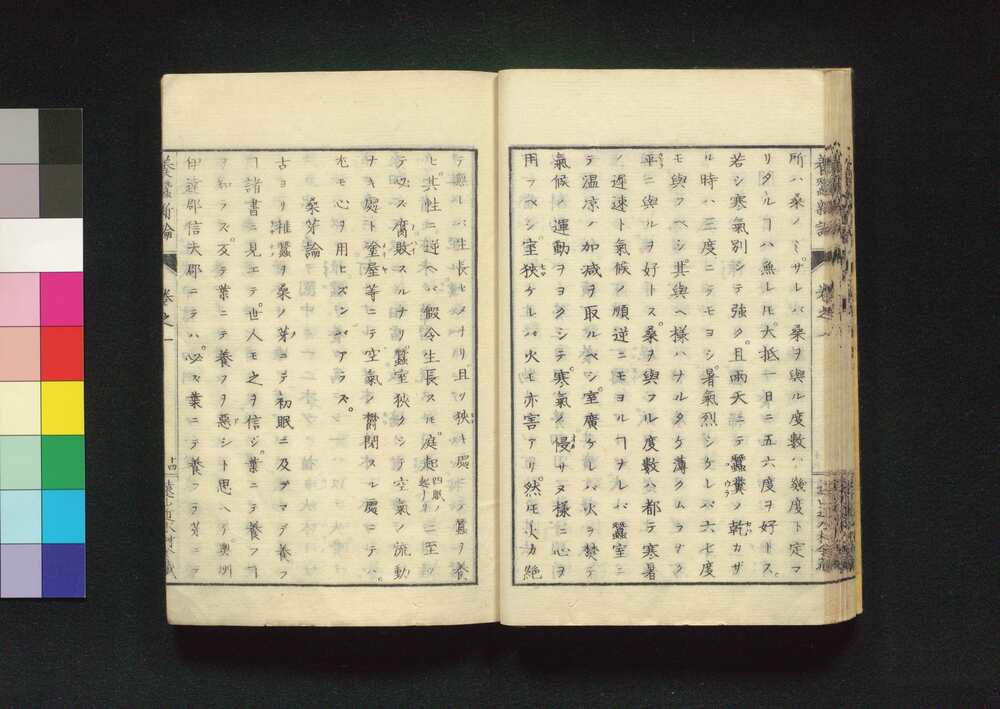 所ハ桑ノミザレバ桑ヲ與ル度數ハ幾度ト定フ
リタルヿハ魚レ𪜈大抵一日ニ五六度ヲ好トス
若シ寒氣別シテ強ク且雨天ニテ蠶糞ノ乾カザ
ル時ハ三度ニテモヨシ暑氣烈シケレバ六七度
モ與フベシ其與ヘ様ハナルタケ薄クムラナク
平ニ與ルヲ好トス桑ヲ與フル度數ハ都テ寒暑
ノ遅速ト氣候ノ順逆ニモヨルヿナレバ蠶室ニ
テ温凉ノ加減ヲ取ルベシ室廣ケレバ火ヲ焚テ
氣候ノ運動ヲヨクシテ寒氣ノ侵サヌ様ニ心ヲ
用フベシ室狭ケレバ火モ亦害アリ然レ𪜈火力絶
テ無レバ生長セヌナリ且ツ狭キ處ニテ蠶ヲ養
ヒ其性ニ逆ヘバ假令生長スルモ庭起四眠ノ起ナリニ至ツ
テ必ズ腐敗スルナリ蠶室狭クシテ空氣ノ流動
ナキ處ト塗屋等ニテ空氣ノ欝閉スル處ニテハ
尤モ心ヲ用ヒズンバアラズ
桑芽論
古ヨリ稚蠶ヲ桑ノ芽ニテ初眠ニ及ブマデ養フ
ヿ諸書ニ見エテ世人モ之ヲ信ジ葉ニテ養フヿ
ヲ知ラズ反テ葉ニテ養フヲ惡シト思ヘリ奥州
伊達郡信夫郡ニテハ必ズ葉ニテ養フヲ芽ニテ
養蠶新論
卷之一
十四